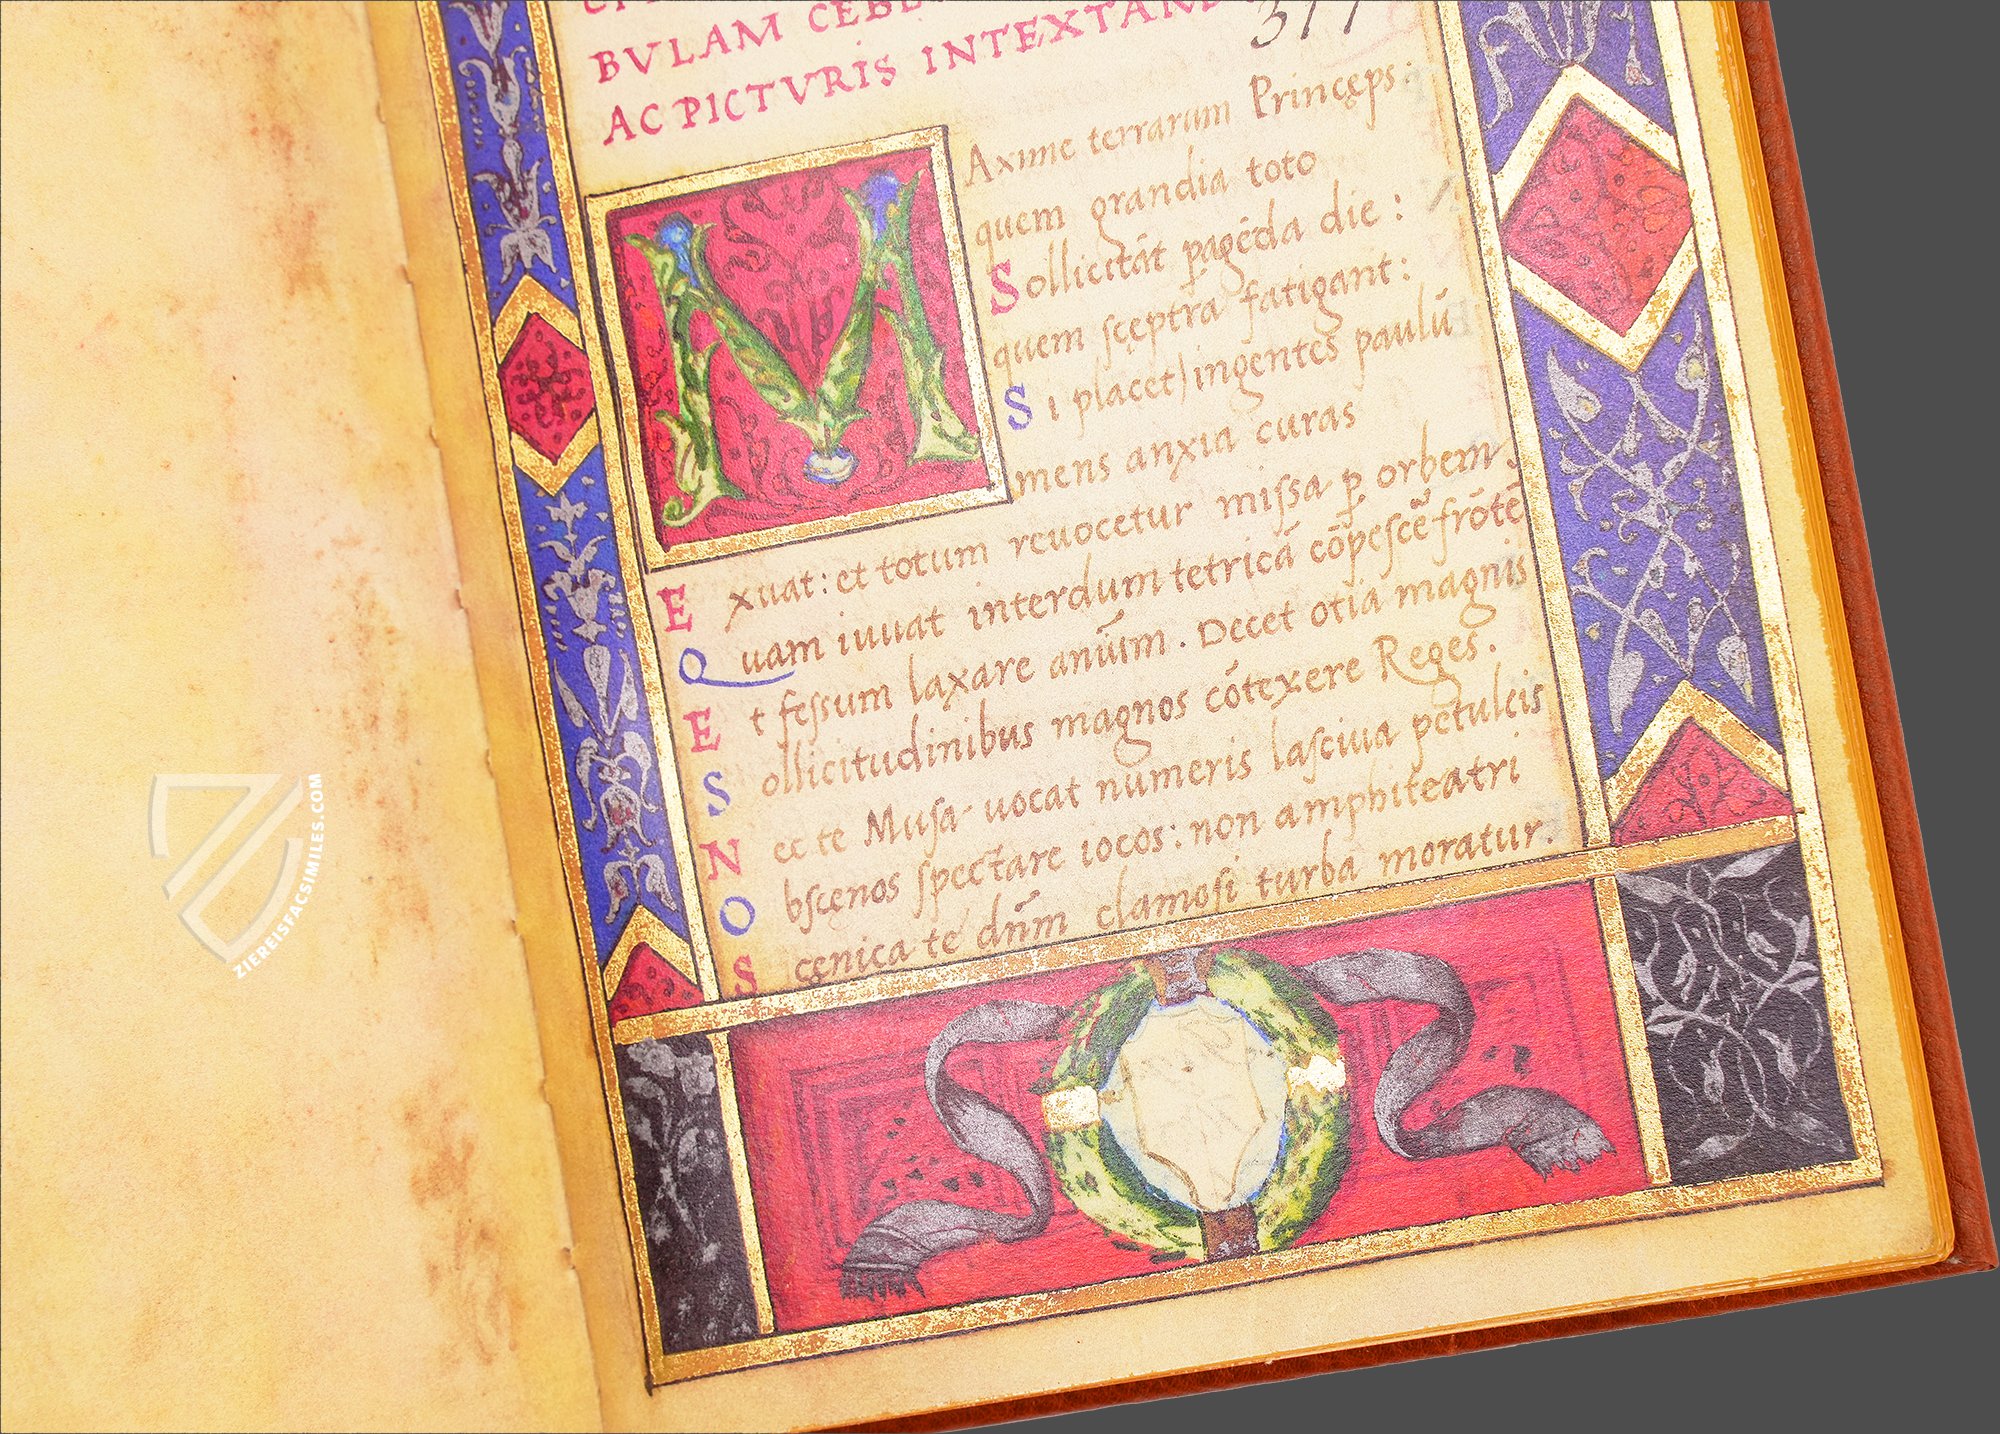 BVLAM CEBE
AC PICTVRIS INTEXTAM
377
MAxime terrarum Princęps:
quem grandia toto
Sollicitāt ꝑagēda die:
quem ſcęptra fatigant:
Si placet) ingentes paulū
mens anxia curas
Exuat: et totum reuocetur miſsa ꝑ orbem
Quam iuuat interdum tetricā cōpeſcē frōtē
Et feſsum laxare anīum. Decet otia magnis
Sollicitudinibus magnos cōtexere Reges.
Nec te Muſa uocat numeris laſciua petulcis
Obſcęnos ſpectare iocos: non amphiteatri
Scęnica te dn̄m clamoſi turba moratur.
ZIEREISFACSIMILES.COM